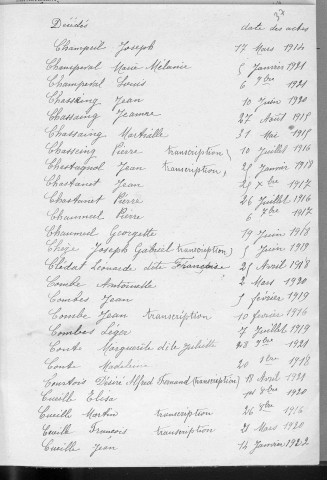 Décédés date des actes
Champeil Joseph 17 Mars 1914
Champeval Marie Mélanie 5 Janvier 1921
Champeval Louis 6 9bre 1921
Chasseing Jean 10 Juin 1920
Chassaing Jeanne 27 Août 1918
Chassaing Martialle 31 Mai 1918
Chasseing Pierre (transcription) 10 Juillet 1916
Chastagnol Jean (transcription) 28 Janvier 1918
Chastanet Jean 21 Xbre 1917
Chastanet Pierre 26 Juillet 1916
Chaumeil Pierre 6 1917
Chaumeil Georgette 19 Juin 1918
Chèze Joseph Gabriel (transcription) 5 Juin 1919
Clédat Léonarde dite Françoise 25 Avril 1918
Combe Antoinette 2 Mars 1920
Combes Jean 5 février 1919
Combe Jean transcription 10 février 1916
Combes Léger 7 Juillet 1919
Conte Marguerite dite Juliette 28 9bre 1921
Conte Madeleine 20 1918
Courtois Désiré Alfred Fernand (transcription) 18 Avril 1921
Cueille Elise 8bre 1920
Cueille Martin transcription 26 8bre 1916
Cueille François transcription 21 Mars 1920
Cueille Jean 14 Janvier 1922